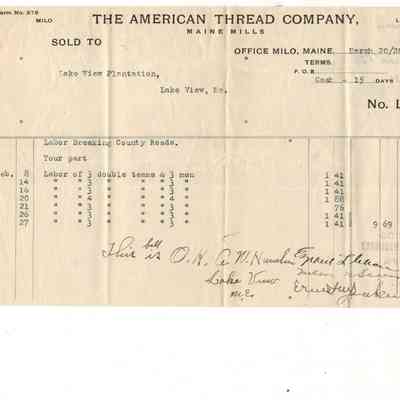 Form No. 378
MILO
THE AMERICAN THREAD COMPANY,
MAINE MILLS
SOLD TO
OFFICE MILO, MAINE. March 20/
TERMS.
F. O. B.
Lake View Plantation,
Lake View, Me.
Cash - 15 DAYS
No. L
Labor Breaking County Roads.
Your part
eb. 8 Labor of 3 double teams & 3 men 1 41
14 " " 3 " " " 3 " 1 41
16 " " 3 " " " 3 " 1 41
20 " " 4 " " " 4 " 1 88
21 " " " " " " 76
26 " " 3 " " " 3 " 1 41
27 " " 3 " " " 3 " 1 41 9 69
This bill is O. K.
Lake View
Me.